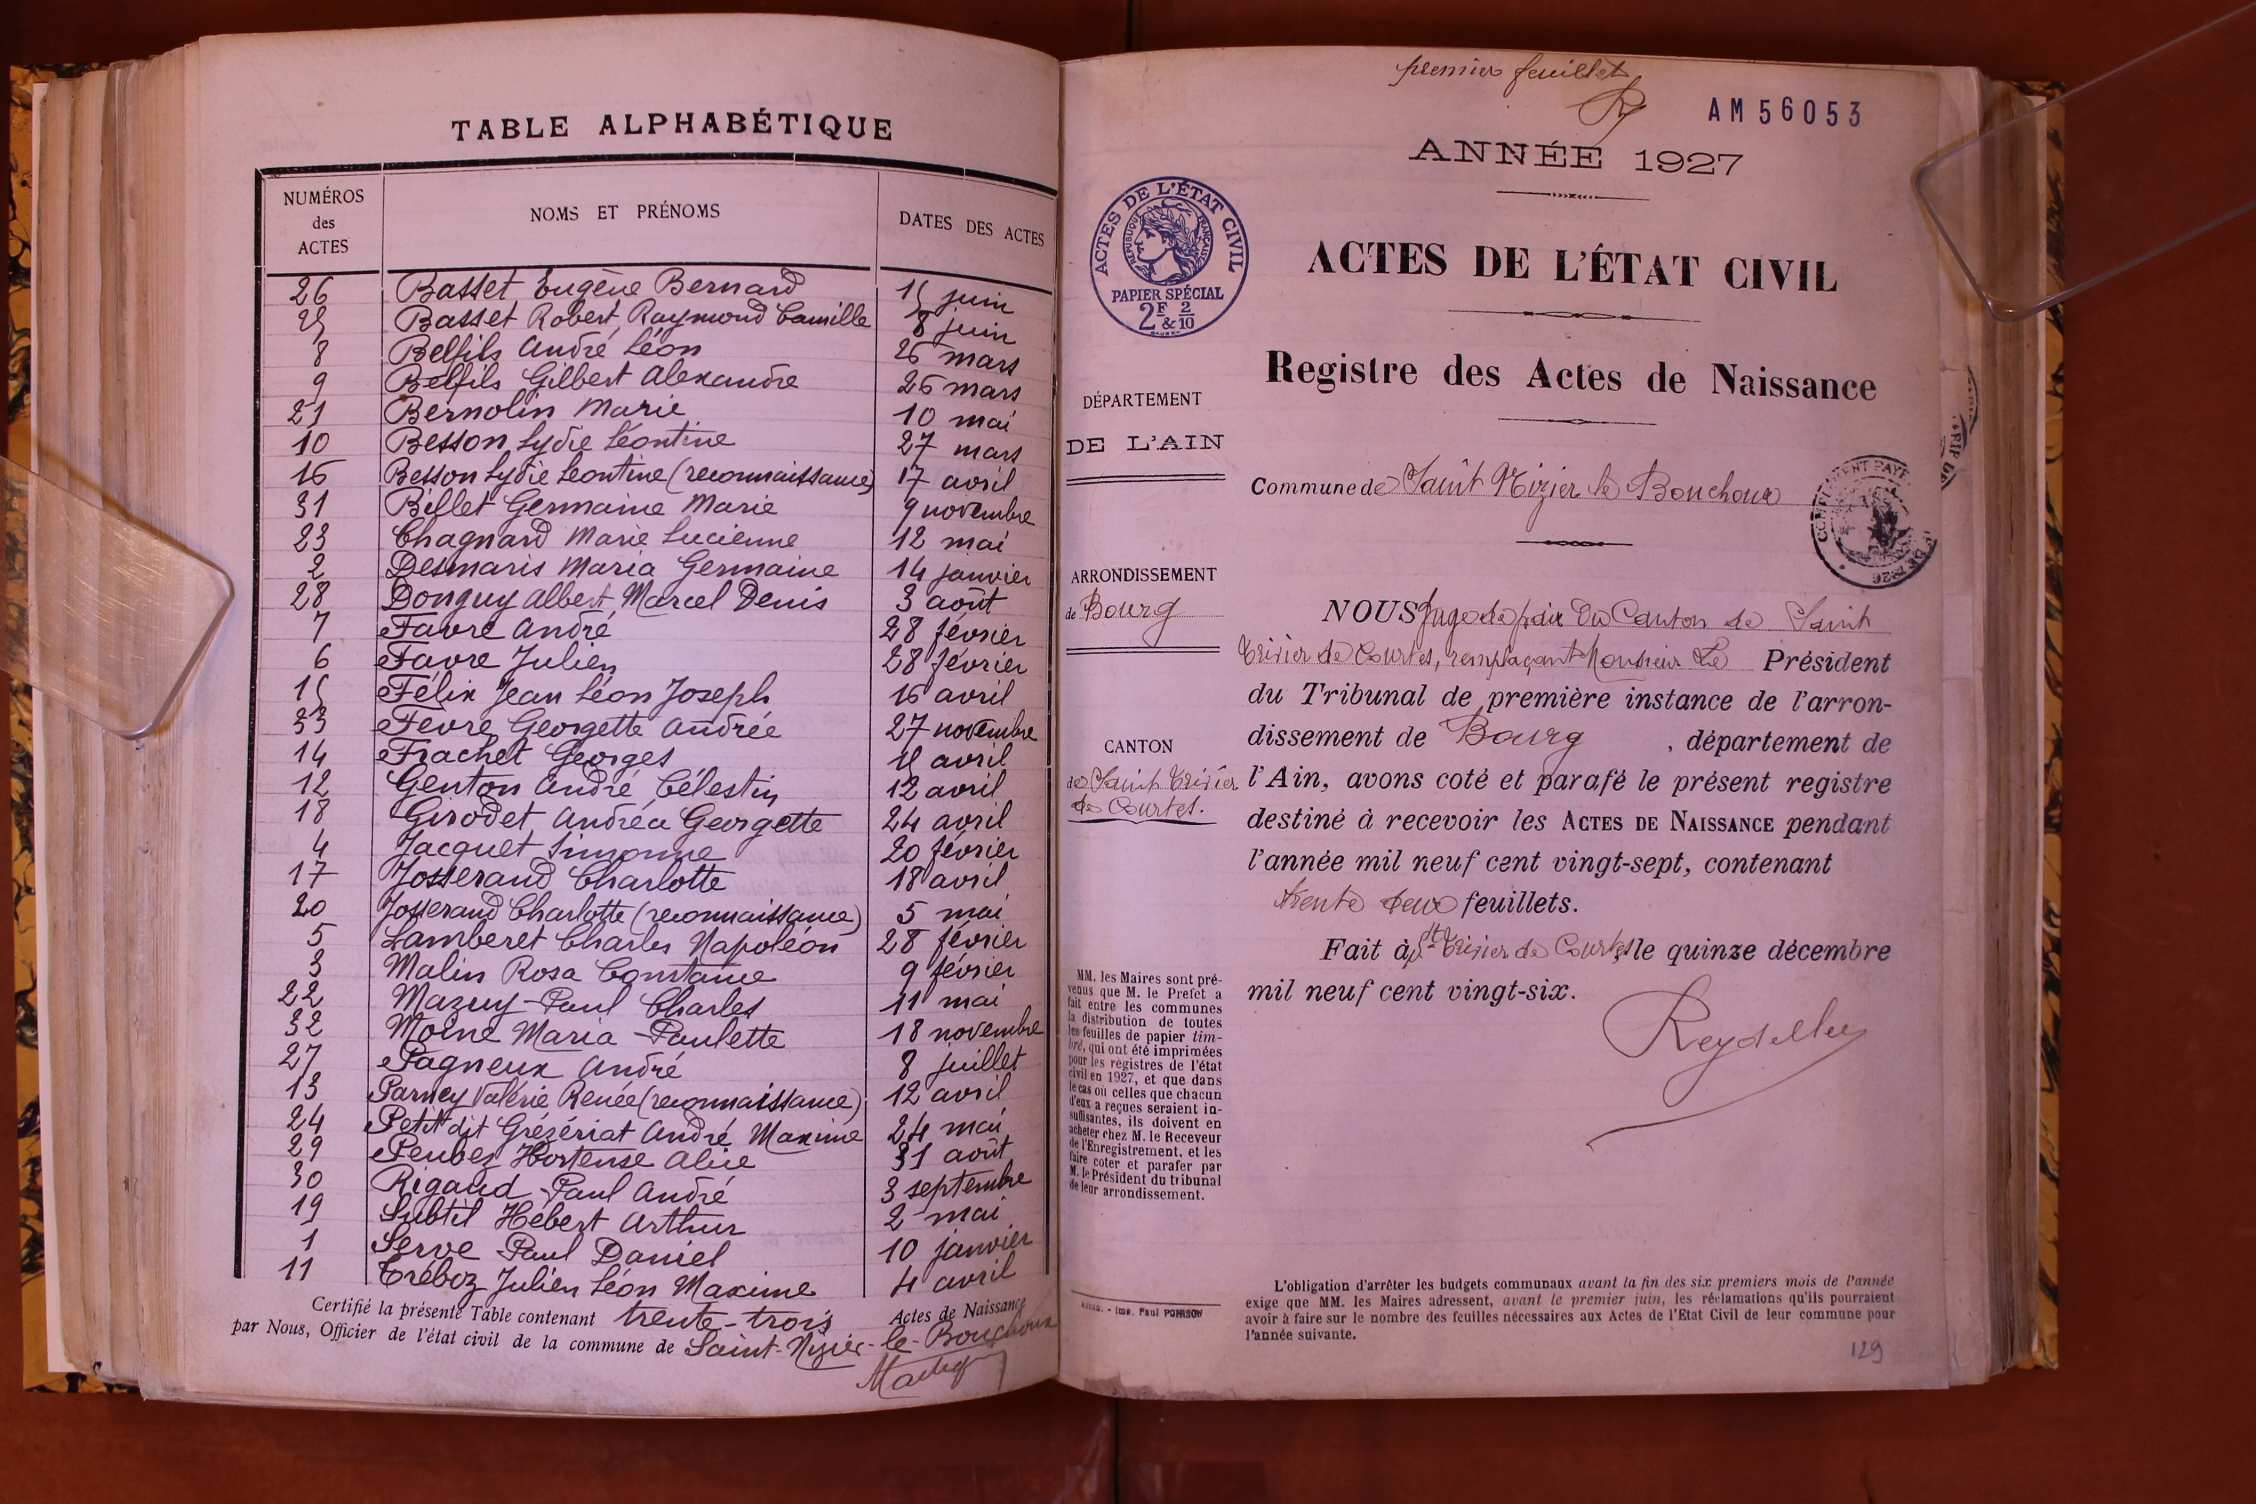 TABLE ALPHABÉTIQUE
NUMÉROS des ACTES NOMS ET PRÉNOMS DATES DES ACTES
26 Basset Eugène Bernard 15 juin
25 Basset Robert Raymond Camille 8 juin
8 Belfils André Léon 26 mars
9 Belfils Gilbert Alexandre 26 mars
21 Bernolin Marie 10 mai
10 Besson Lydie Léontine 27 mars
16 Besson Lydie Leontine (reconnaissance) 17 avril
31 Billet Germaine Marie 9 novembre
23 Chagnard Marie Lucienne 12 mai
2 Desmaris Maria Germaine 14 janvier
28 Donguy Albert Marcel Denis 3 août
7 Favre André 28 février
6 Favre Julien 28 février
15 Félix Jean Léon Joseph 16 avril
33 Fevre Georgette Andrée 27 novembre
14 Frachet Georges avril
12 Genton André Célestin 12 avril
18 Girodet Andréa Georgette 24 avril
4 Jacquet Simonne 20 février
17 Josserand Charlotte 18 avril
20 Josserand Charlotte (reconnaissance) 5 mai
5 Lamberet Charles Napoléon 28 février
3 Malin Rosa Constance 9 février
22 Mazuy Paul Charles 11 mai
32 Moine Maria Paulette 18 novembre
27 Pagneux André 8 juillet
13 Parney Valérie Renée (reconnaissance) 12 avril
24 Petit dit Grézériat André Maxime 24 mai
29 Peubez Hortense Alice 31 août
30 Rigaud Paul André 3 septembre
19 Subtil Hébert Arthur 2 mai
1 Serve Paul Daniel 10 janvier
11 Tréboz Julien Léon Maxime 4 avril
Certifié la présente Table contenant trente-trois Actes de Naissance
par Nous, Officier de l'état civil de la commune de Saint-Nizier-le-Bouchoux
premier feuillet
AM 56053
ANNÉE 1927
ACTES DE L'ÉTAT CIVIL
RÉPUBLIQUE FRANÇAISE
PAPIER SPÉCIAL
2F & 2/10
ACTES DE L'ÉTAT CIVIL
Registre des Actes de Naissance
DÉPARTEMENT
DE L'AIN
Commune de Saint Nizier le Bouchoux
ARRONDISSEMENT
de Bourg
CANTON
de Saint Trivier
de Courtes.
NOUS Juge de paix du Canton de Saint
Trivier de Courtes, remplaçant Monsieur Le Président
du Tribunal de première instance de l'arron-
dissement de Bourg, département de
l'Ain, avons coté et parafé le présent registre
destiné à recevoir les ACTES DE NAISSANCE pendant
l'année mil neuf cent vingt-sept, contenant
trente deux feuillets.
Fait à St Trivier de Courtes le quinze décembre
mil neuf cent vingt-six.
MM. les Maires sont pré-
venus que M. le Prefet a
fait entre les communes
la distribution de toutes
les feuilles de papier tim-
bré, qui ont été imprimées
pour les registres de l'état
civil en 1927, et que dans
le cas où celles que chacun
d'eux a reçues seraient in-
suffisantes, ils doivent en
acheter chez M. le Receveur
de l'Enregistrement, et les
faire coter et parafer par
M. le Président du tribunal
de leur arrondissement.
Imp. Paul
L'obligation d'arrêter les budgets communaux avant la fin des six premiers mois de l'année
exige que MM. les Maires adressent, avant le premier juin, les réclamations qu'ils pourraient
avoir à faire sur le nombre des feuilles nécessaires aux Actes de l'Etat Civil de leur commune pour
l'année suivante.
129